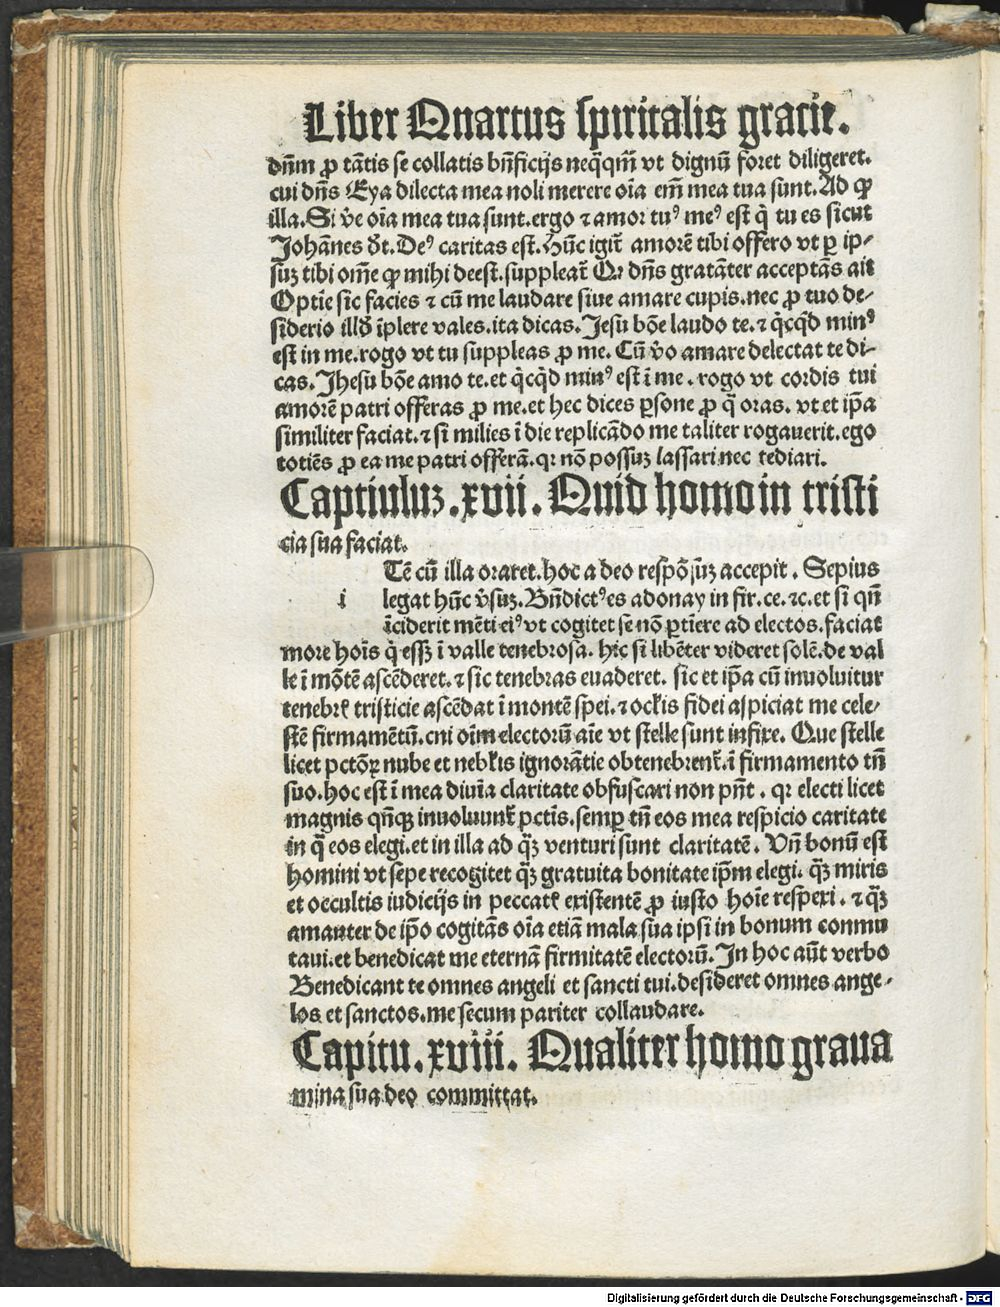 Liber Quartus spiritalis gracie.
dñm ꝓ tãtis se collatis bñficijs neq̈qm̃ vt dignũ foret diligeret.
cui dñs Eya dilecta mea noli merere oĩa em̃ mea tua sunt. Ad ꝙ
illa. Si v̾e oĩa mea tua sunt. ergo ⁊ amor tuꝰ meꝰ est q̇ tu es sicut
Johãnes d̾t. Deꝰ caritas est. Hũc igit̃ amorẽ tibi offero vt ꝑ ip⸗
suꝫ tibi om̃e ꝙ mihi deest. suppleat̃ Qꝛ dñs gratãter acceptãs ait
Optĩe sic facies ⁊ cũ me laudare siue amare cupis. nec ꝓ tuo de⸗
siderio illd̾ ĩplere vales. ita dicas. Jesu bõe laudo te. ⁊ q̇cq̇d minꝰ
est in me. rogo vt tu suppleas ꝓ me. Cũ v̾o amare delectat te di⸗
cas. Jhesu bõe amo te. et q̇cq̇d minꝰ est ĩ me. rogo vt cordis tui
amorẽ patri offeras ꝓ me. et hec dices ꝑsone ꝓ q̃ oras. vt et ip̃a
similiter faciat. ⁊ si milies ĩ die replicãdo me taliter rogauerit. ego
totiẽs ꝓ ea me patri offerã. qꝛ nõ possuꝫ lassari nec tediari.
Captiuluꝫ .xvii. Quid homo in tristi
cia sua faciat.
Tẽ cũ illa oraret. hoc a deo respõsuꝫ accepit. Sepius
i legat hũc v̾suꝫ. Bñdictꝰ es adonay in fir. ce. ⁊c. et si qñ
ĩciderit mẽti eiꝰ vt cogitet se nõ ꝑtĩere ad electos. faciat
more hoĩs q̇ essꝫ ĩ valle tenebrosa. hic si libẽter videret solẽ. de val
le ĩ mõtẽ ascẽderet. ⁊ sic tenebras euaderet. sic et ip̃a cũ inuoluitur
tenebrꝭ tristicie ascẽdat ĩ montẽ spei. ⁊ oclis fidei aspiciat me cele⸗
stẽ firmamẽtũ. cui oĩm electorũ aĩe vt stelle sunt infixe. Que stelle
licet pctõꝝ nube et neblis ignorãtie obtenebrent̃. ĩ firmamento tñ
suo. hoc est ĩ mea diuĩa claritate obfuscari non pñt. qꝛ electi licet
magnis qñqꝫ inuoluunt̃ pctĩs. semꝑ tñ eos mea respicio caritate
in q̃ eos elegi. et in illa ad q̃ꝫ venturi sunt claritatẽ. Vñ bonũ est
homini vt sepe recogitet q̃ꝫ gratuita bonitate ip̃m elegi. q̃ꝫ miris
et occultis iudicijs in peccatꝭ existentẽ ꝓ iusto hoĩe respexi. ⁊ q̃ꝫ
amanter de ip̃o cogitãs oĩa etiã mala sua ipsi in bonum conmu
taui. et benedicat me eternã firmitatẽ electorũ. In hoc aũt verbo
Benedicant te omnes angeli et sancti tui. desideret omnes ange⸗
los et sanctos. me secum pariter collaudare.
Capitu. xviii. Qualiter homo graua
mina sua deo committat.
Digitalisierung gefördert durch die Deutsche Forschungsgemeinschaft - DFG